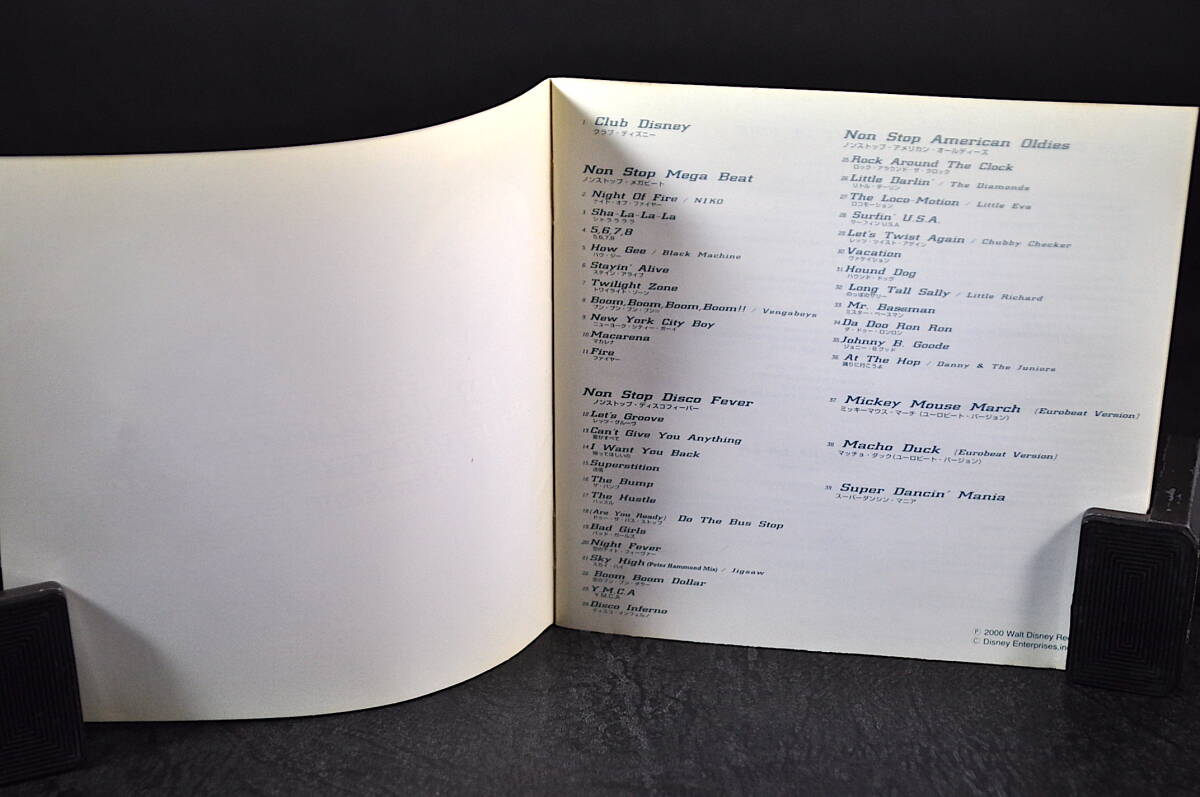 1 Club Disney
クラブ・ディズニー
Non Stop Mega Beat
ノンストップ・メガビート
2 Night Of Fire / NIKO
ナイト・オブ・ファイヤー
3 Sha-La-La-La
シャララララ
4 5,6,7,8
5,6,7,8
5 How Gee / Black Machine
ハウ・ジー
6 Stayin' Alive
ステイン・アライブ
7 Twilight Zone
トワイライト・ゾーン
8 Boom,Boom,Boom,Boom!! / Vengaboys
ブン・ブン・ブン・ブン!!
9 New York City Boy
ニューヨーク・シティー・ボーイ
10 Macarena
マカレナ
11 Fire
ファイヤー
Non Stop Disco Fever
ノンストップ・ディスコフィーバー
12 Let's Groove
レッツ・グルーヴ
13 Can't Give You Anything
愛がすべて
14 I Want You Back
帰ってほしいの
15 Superstition
迷信
16 The Bump
ザ・バンプ
17 The Hustle
ハッスル
18 (Are You Ready) Do The Bus Stop
ドゥー・ザ・バス・ストップ
19 Bad Girls
バッド・ガールズ
20 Night Fever
恋のナイト・フィーヴァー
21 Sky High (Peter Hammond Mix) / Jigsaw
スカイ・ハイ
22 Boom Boom Dollar
恋のブン・ブン・ダラー
23 Y.M.C.A
Y.M.C.A
24 Disco Inferno
ディスコ・インフェルノ
Non Stop American Oldies
ノンストップ・アメリカン・オールディーズ
25 Rock Around The Clock
ロック・アラウンド・ザ・クロック
26 Little Darlin' / The Diamonds
リトル・ダーリン
27 The Loco-Motion / Little Eva
ロコモーション
28 Surfin' U.S.A.
サーフィンU.S.A
29 Let's Twist Again / Chubby Checker
レッツ・ツイスト・アゲイン
30 Vacation
ヴァケイション
31 Hound Dog
ハウンド・ドッグ
32 Long Tall Sally / Little Richard
のっぽのサリー
33 Mr. Bassman
ミスター・ベースマン
34 Da Doo Ron Ron
ダ・ドゥー・ロンロン
35 Johnny B. Goode
ジョニー・B.グッド
36 At The Hop / Danny & The Juniors
踊りに行こうよ
37 Mickey Mouse March (Eurobeat Version)
ミッキーマウス・マーチ (ユーロビート・バージョン)
38 Macho Duck (Eurobeat Version)
マッチョ・ダック(ユーロビート・バージョン)
39 Super Dancin' Mania
スーパーダンシン・マニア
Ⓟ 2000 Walt Disney Re
Ⓒ Disney Enterprises,in